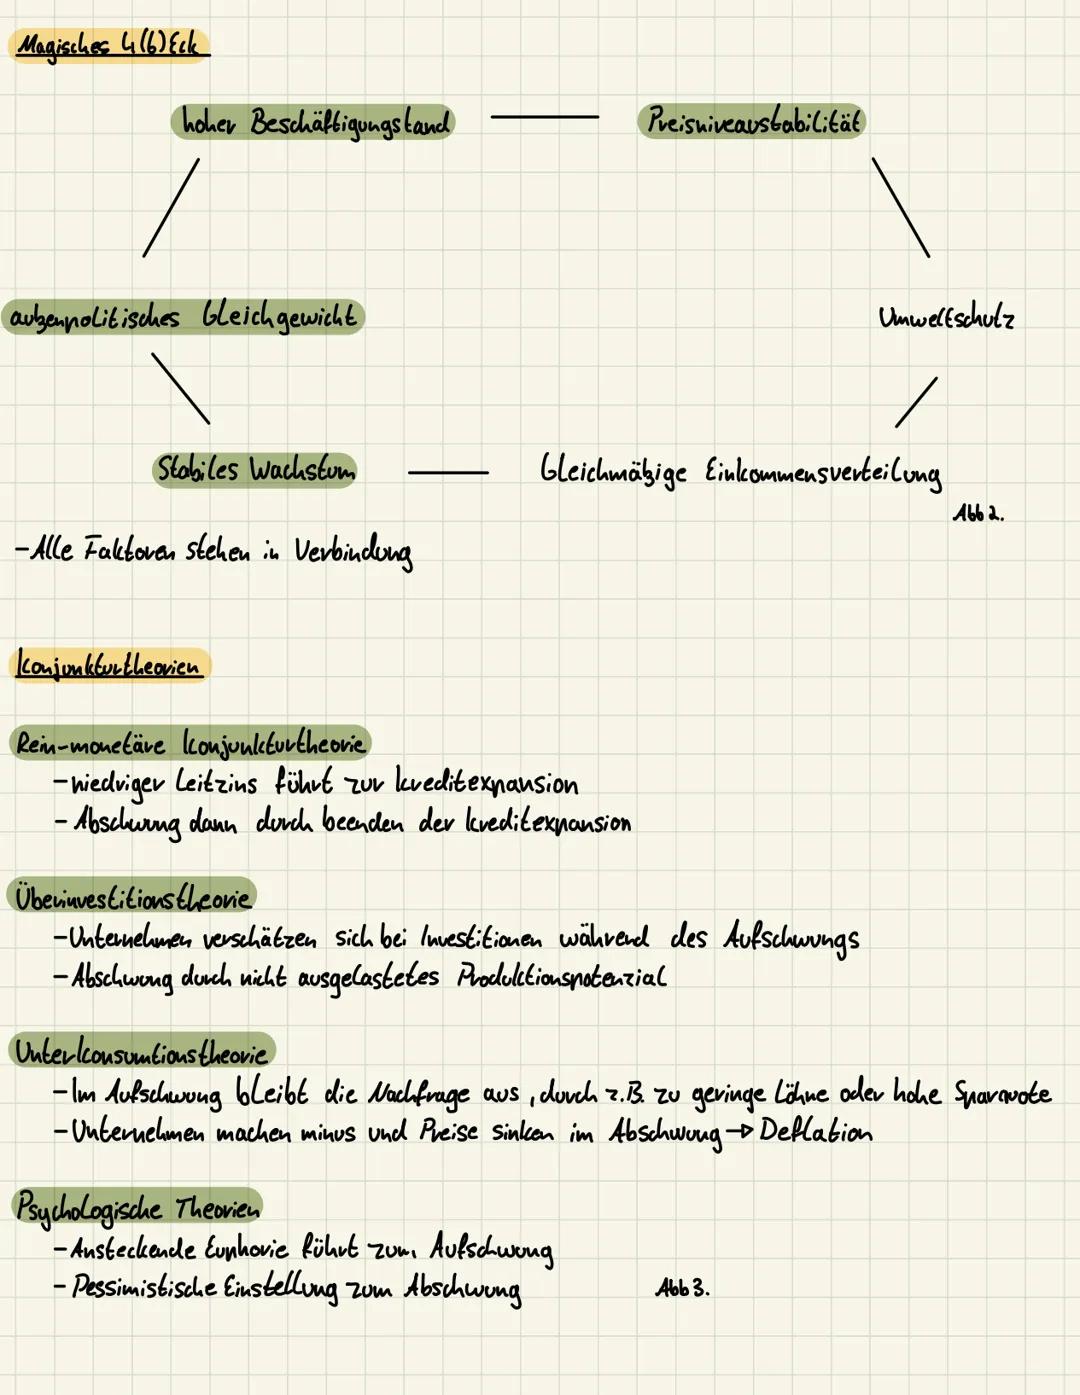 Magisches 4(6)Eck
hoher Beschäftigungstand
Preisniveaustabilität
außenpolitisches Gleichgewicht
Umweltschutz
Stabiles Wachstum
Gleichmäßige Einkommensverteilung
Abb 2.
-Alle Faktoren stehen in Verbindung
Konjunkturtheorien
Rein-monetäre Konjunkturtheorie
-niedriger Leitzins führt zur kreditexpansion
- Abschwung dann durch beenden der kreditexpansion
Überinvestitionstheorie
-Unternehmen verschätzen sich bei Investitionen während des Aufschwungs
-Abschwung durch nicht ausgelastetes Produktionspotenzial
Unterkonsumtionstheorie
-Im Aufschwung bleibt die Nachfrage aus, durch z.B. zu geringe Löhne oder hohe Sparquote
-Unternehmen machen minus und Preise sinken im Abschwung → Deflation
Psychologische Theorien
-Ansteckende Euphorie führt zum Aufschwung
- Pessimistische Einstellung zum Abschwung
Abb 3.